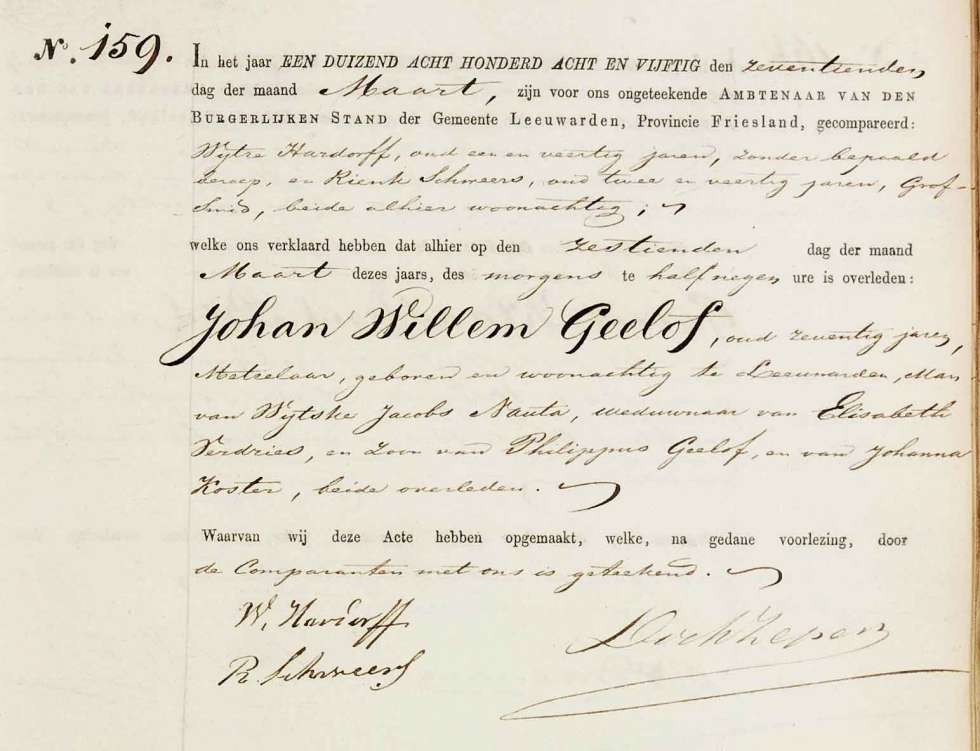 No. 159. In het jaar EEN DUIZEND ACHT HONDERD ACHT EN VIJFTIG den zeventienden
dag der maand Maart, zijn voor ons ongeteekende AMBTENAAR VAN DEN
BURGERLIJKEN STAND der Gemeente Leeuwarden, Provincie Friesland, gecompareerd:
Wytze Hardorff, oud een en veertig jaren, zonder bepaald
beroep, en Rienk Schweers, oud twee en veertig jaren, Grof-
smid, beide alhier woonachtig;
welke ons verklaard hebben dat alhier op den zestienden dag der maand
Maart dezes jaars, des morgens te half negen ure is overleden:
Johan Willem Geelof, oud zeventig jaren,
Metselaar, geboren en woonachtig te Leeuwarden, Man
van Wytske Jacobs Nauta, weduwnaar van Elisabeth
Serdries, en Zoon van Philippus Geelof, en van Johanna
Koster, beide overleden.
Waarvan wij deze Acte hebben opgemaakt, welke, na gedane voorlezing, door
de Comparanten met ons is geteekend.
W. Hardorff
R. Schweers